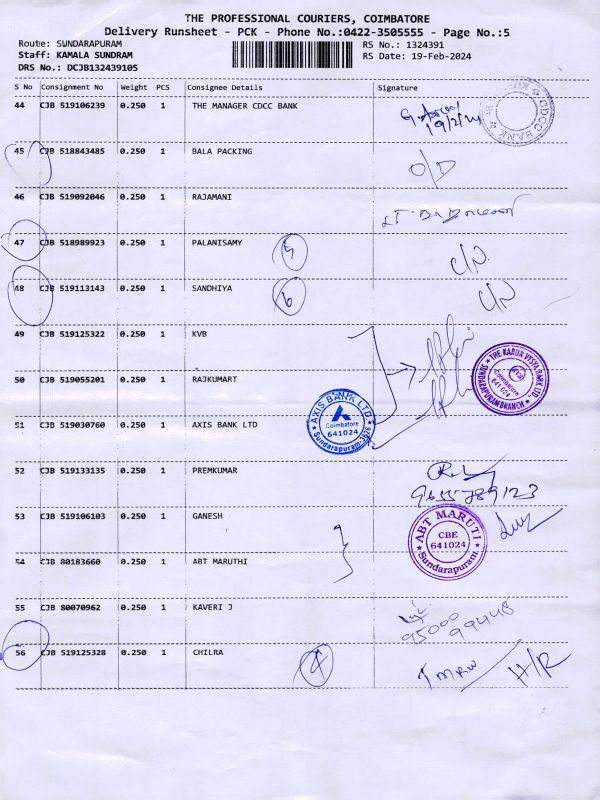 THE PROFESSIONAL COURIERS, COIMBATORE
Delivery Runsheet - PCK - Phone No.:0422-3505555 - Page No.:5
Route: SUNDARAPURAM RS No.: 1324391
Staff: KAMALA SUNDRAM RS Date: 19-Feb-2024
DRS No.: DCJB132439105
S No Consignment No Weight PCS Consignee Details Signature
44 CJB 519106239 0.250 1 THE MANAGER CDCC BANK
19/2/24
CDCC BANK
45 CJB 518843485 0.250 1 BALA PACKING O/D
46 CJB 519092046 0.250 1 RAJAMANI
47 CJB 518989923 0.250 1 PALANISAMY 5 C/N.
48 CJB 519113143 0.250 1 SANDHIYA 6 C/N
49 CJB 519125322 0.250 1 KVB
THE KARUR VYSYA BANK LTD.,
KVB
Coimbatore
641 024
SUNDARAPURAM BRANCH
50 CJB 519055201 0.250 1 RAJKUMART
51 CJB 519030760 0.250 1 AXIS BANK LTD
AXIS BANK LTD
Coimbatore
641024
Sundarapuram-3626
52 CJB 519133135 0.250 1 PREMKUMAR
9655789123
53 CJB 519106103 0.250 1 GANESH
ABT MARUTI
CBE
641024
Sundarapuram
54 CJB 80183660 0.250 1 ABT MARUTHI
55 CJB 80070962 0.250 1 KAVERI J
95000
99448
56 CJB 519125328 0.250 1 CHILRA 4 TMRW H/R